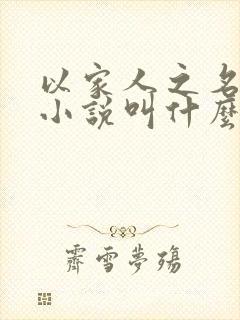 以家人之名
小説叫什麼
霽雪夢殤